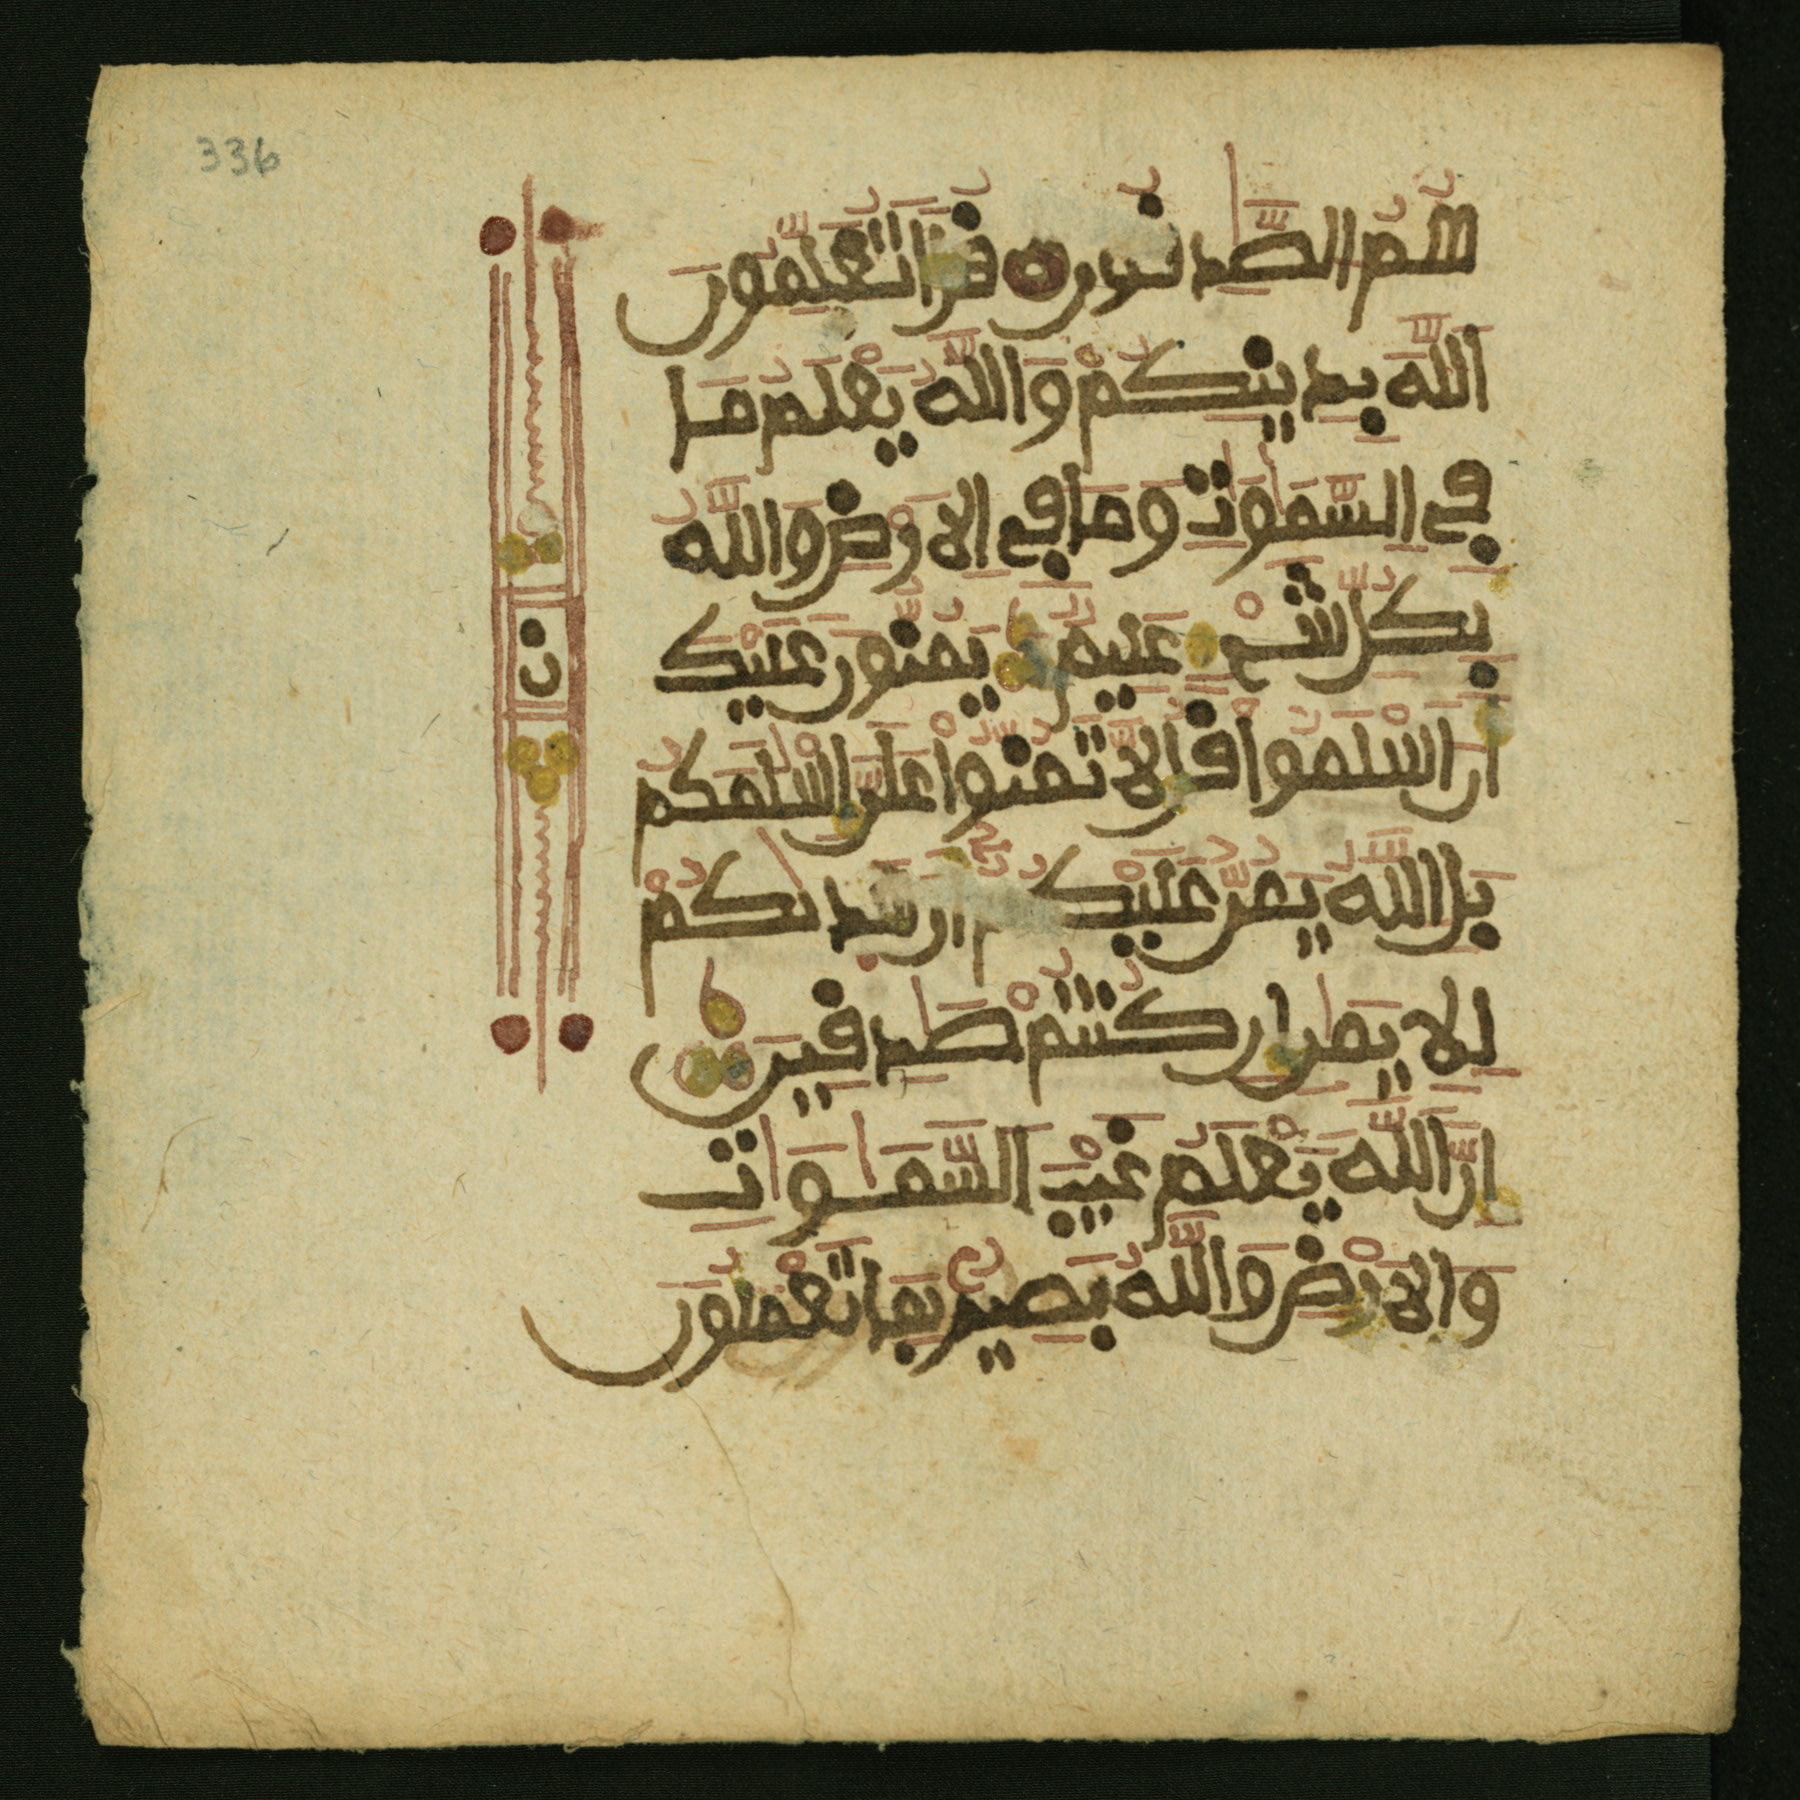 336
هُمُ الصَّٰدِقُونَ قُلَ اَتُعَلِّمُونَ
اَللَّهَ بِدِينِكُمْ وَاللَّهُ يَعْلَمُ مَا
فِي السَّمَٰوَٰتِ وَمَا فِي اِلَارْضِ وَاللَّهُ
بِكُلِّ شَےْءٍ عَلِيمٌ يَمُنُّونَ عَلَيْكَ
أَنَ اَسْلَمُواْ قُل لَّا تَمُنُّواْ عَلَيَّ إِسْلَٰمَكُم
بَلِ اللَّهُ يَمُنُّ عَلَيْكُمُ أَنْ هَدَىٰكُمْ
لِلِايمَٰنِ إِن كُنتُمْ صَٰدِقِينَ
إِنَّ اللَّهَ يَعْلَمُ غَيْبَ السَّمَٰوَٰتِ
وَالَارْضِ وَاللَّهُ بَصِيرٌ بِمَا تَعْمَلُونَ
ن